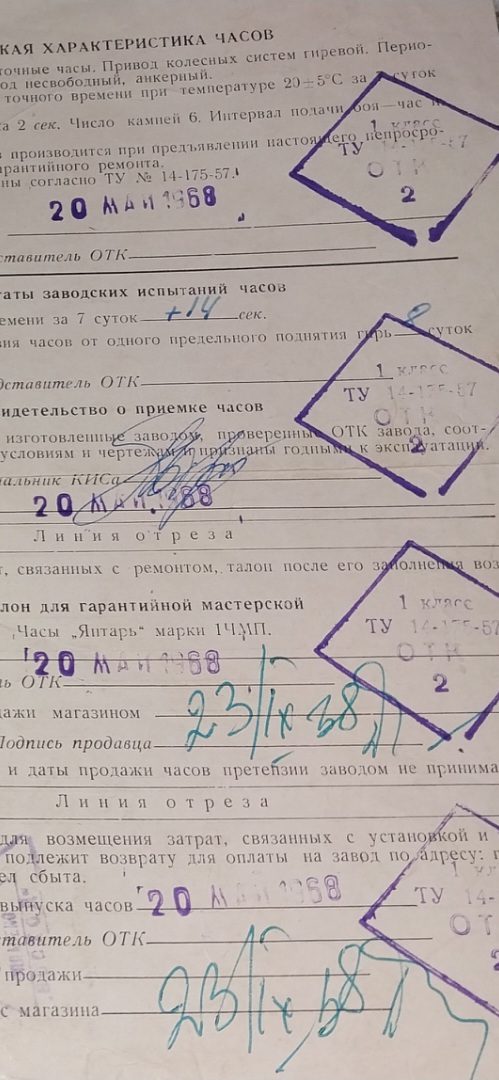 КАЯ ХАРАКТЕРИСТИКА ЧАСОВ
точные часы. Привод колесных систем гиревой. Перио-
од несвободный, анкерный.
точного времени при температуре 20±5°С за 7 суток
ка 2 сек. Число камней 6. Интервал подачи боя—час и
в производится при предъявлении настоящего непросро-
арантийного ремонта.
ны согласно ТУ № 14-175-57.
1 класс
ТУ 14-175-57
ОТК
2
20 МАЙ 1968
ставитель ОТК
таты заводских испытаний часов
емени за 7 суток +14 сек.
вия часов от одного предельного поднятия гирь 8 суток
дставитель ОТК
1 класс
ТУ 14-175-57
ОТК
2
видетельство о приемке часов
изготовленные заводом, проверенные ОТК завода, соот-
условиям и чертежам и признаны годными к эксплуатации.
чальник КИСа
20 МАЙ 1968
Линия отреза
т, связанных с ремонтом, талон после его заполнения воз
лон для гарантийной мастерской
Часы „Янтарь" марки 1ЧМП.
1 класс
ТУ 14-175-57
ОТК
2
20 МАЙ 1968
ль ОТК
дажи магазином 23/IX 68
Подпись продавца
и даты продажи часов претензии заводом не принима
Линия отреза
для возмещения затрат, связанных с установкой и
подлежит возврату для оплаты на завод по адресу: г
ел сбыта.
выпуска часов 20 МАЙ 1968
ТУ 14-
ОТ
ставитель ОТК
продажи 23/IX 68
с магазина